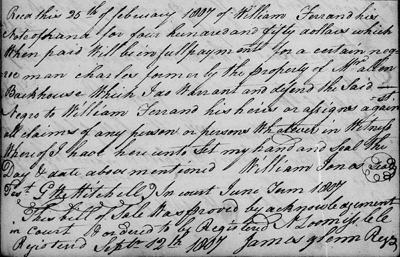 Recd this 25th of february 1807 of William Torrand his
Note of hand for four hundred and fifty dollars which
When paid Will be in full payment for a certain neg
roe man charles formerly the property of Mr allen
Backhouse Which I do Warrant and defend the Said
Negro to William Torrand his heirs or asigns against
all claims of any person or persons Whatever in Witness
Where of I have here unto Set my hand and Seal the
Day & date above mentioned William Jones Seal
Test G W Mitchell In court June Term 1807
This bill of Sale Was proved by acknowledgement
in Court & ordered to by Registerd N Loomis clc
Registered Septr 12th 1807 James glenn Regr